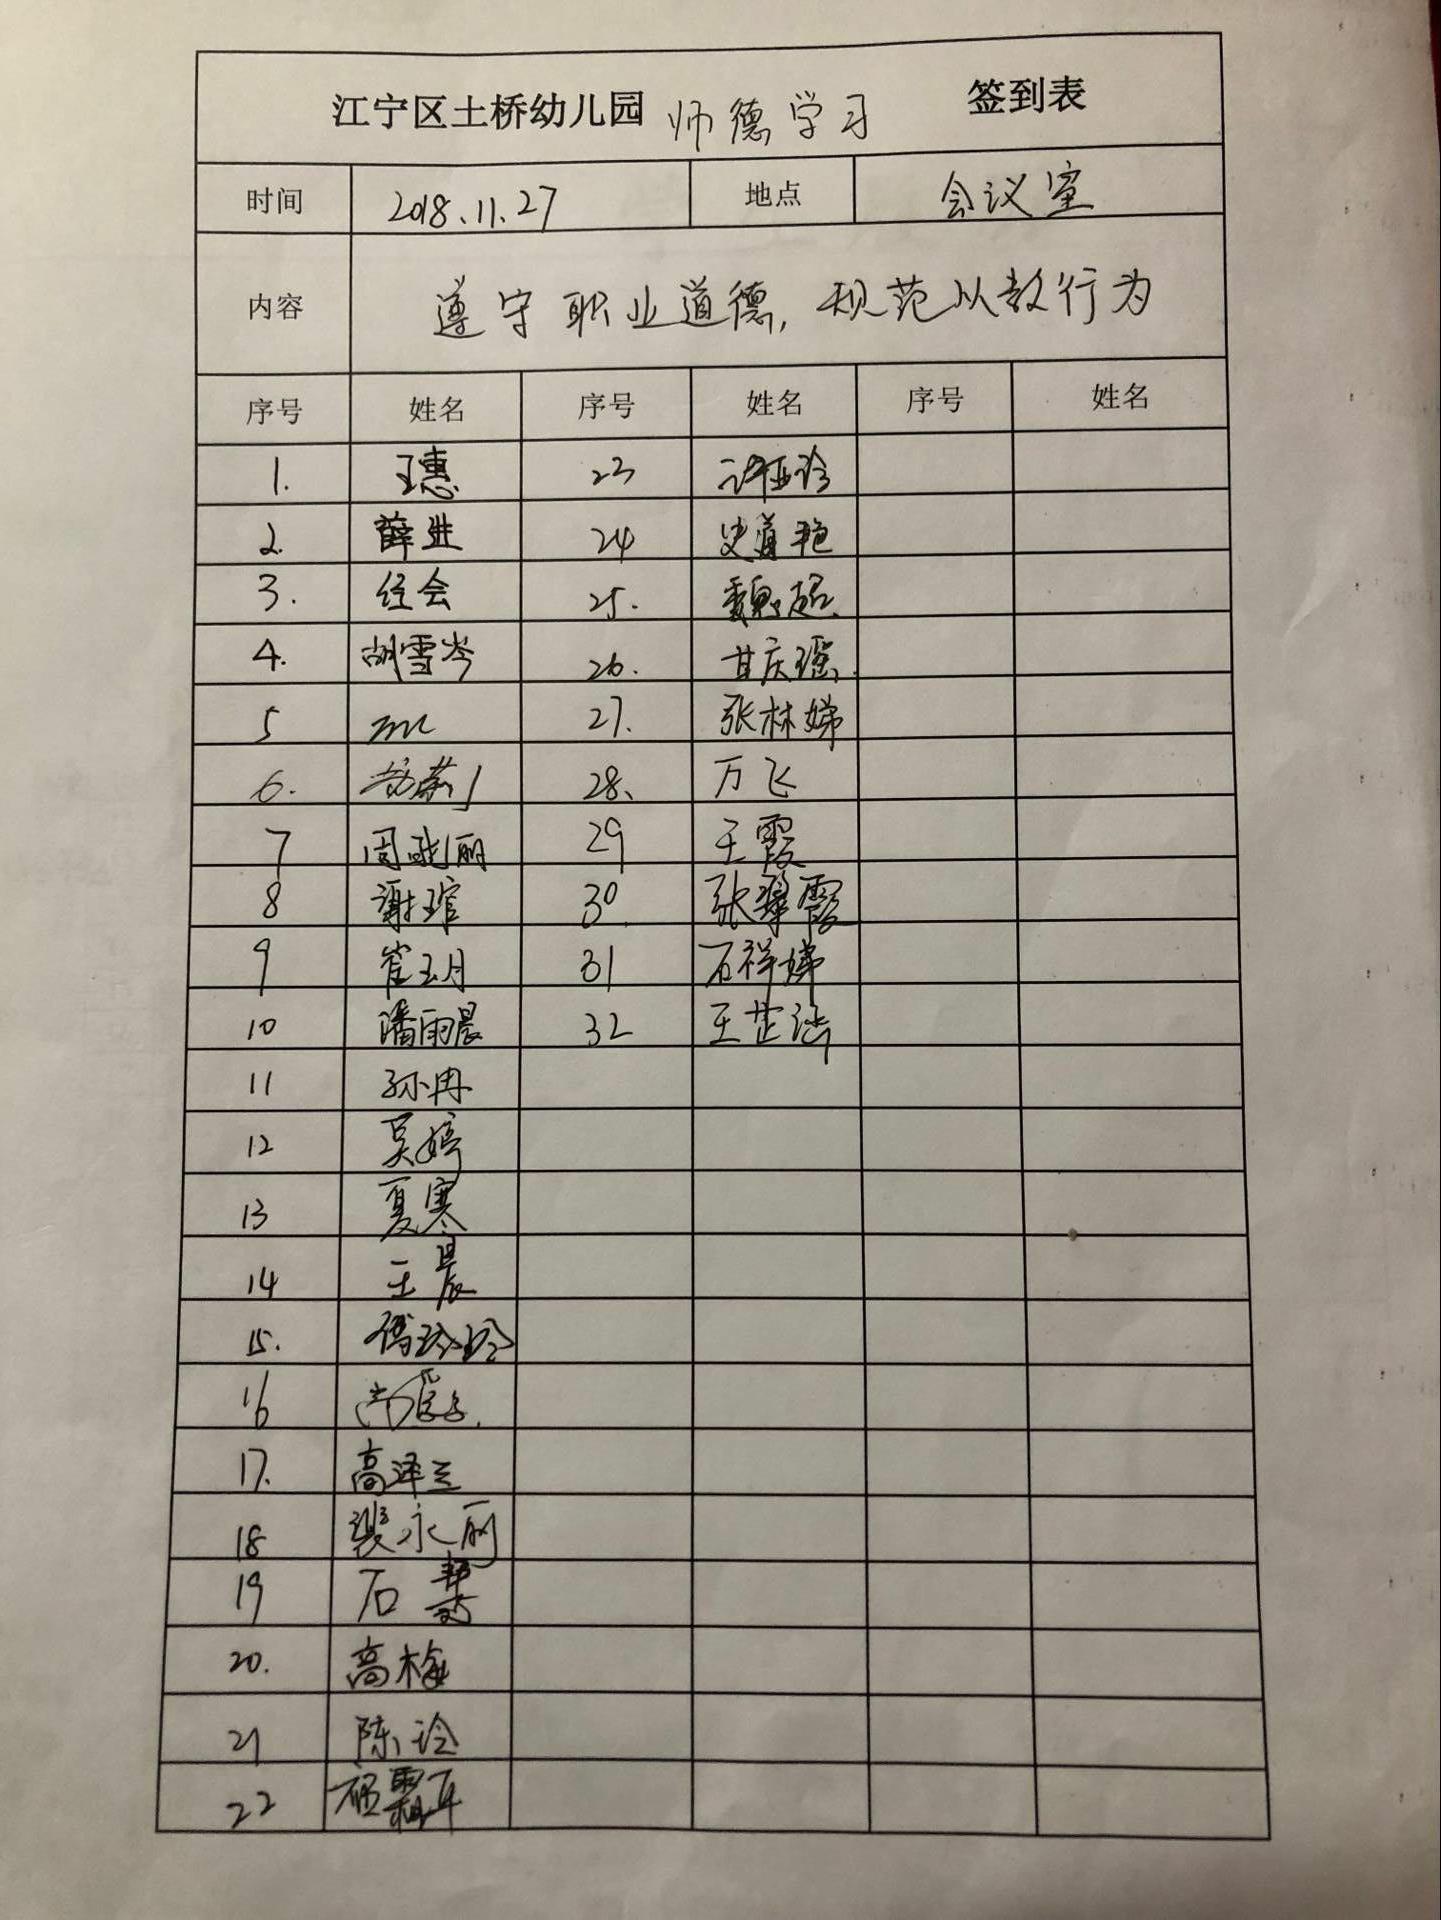 江宁区土桥幼儿园 师德学习 签到表
时间 2018.11.27 地点 会议室
内容 遵守职业道德,规范从教行为
序号 姓名 序号 姓名 序号 姓名
1. 王惠 23 许亚玲
2. 薛进 24
3. 经会 25. 魏超
4. 胡雪岑 26. 甘庆瑶
5 27. 张林娣
6. 28、 万飞
7 周晓丽 29 王霞
8 谢琯 30 张翠霞
9 崔玉月 31 石祥娣
10 潘雨晨 32 王芷涵
11 孙冉
12 吴婷
13 夏寒
14 王晨
15. 傅玲玲
16
17. 高泽兰
18 裴永丽
19 石
20. 高梅
21 陈玲
22